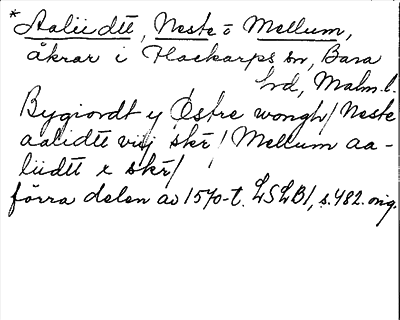 * Aaliidtt, Neste o Mellum,
åkrar i Flackarps sn, Bara
hrd, Malm.l.
Bygiordt y Østre wongh / Neste
aalidtt viij skr / Mellum aa-
liidtt x skr /
förra delen av 1570-t. LSLB1, s. 482. orig.